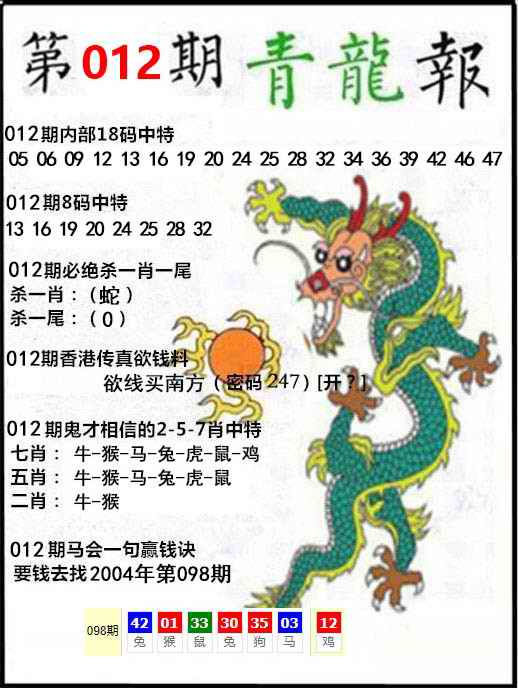 第012期青龍報
012期内部18码中特
05 06 09 12 13 16 19 20 24 25 28 32 34 36 39 42 46 47
012期8码中特
13 16 19 20 24 25 28 32
012期必绝杀一肖一尾
杀一肖：（蛇）
杀一尾：（0）
012期香港传真欲钱料
欲线买南方（密码247）[开？]
012期鬼才相信的2-5-7肖中特
七肖： 牛-猴-马-兔-虎-鼠-鸡
五肖： 牛-猴-马-兔-虎-鼠
二肖： 牛-猴
012期马会一句赢钱诀
要钱去找2004年第098期
098期 42 01 33 30 35 03 12
兔 猴 鼠 兔 狗 马 鸡